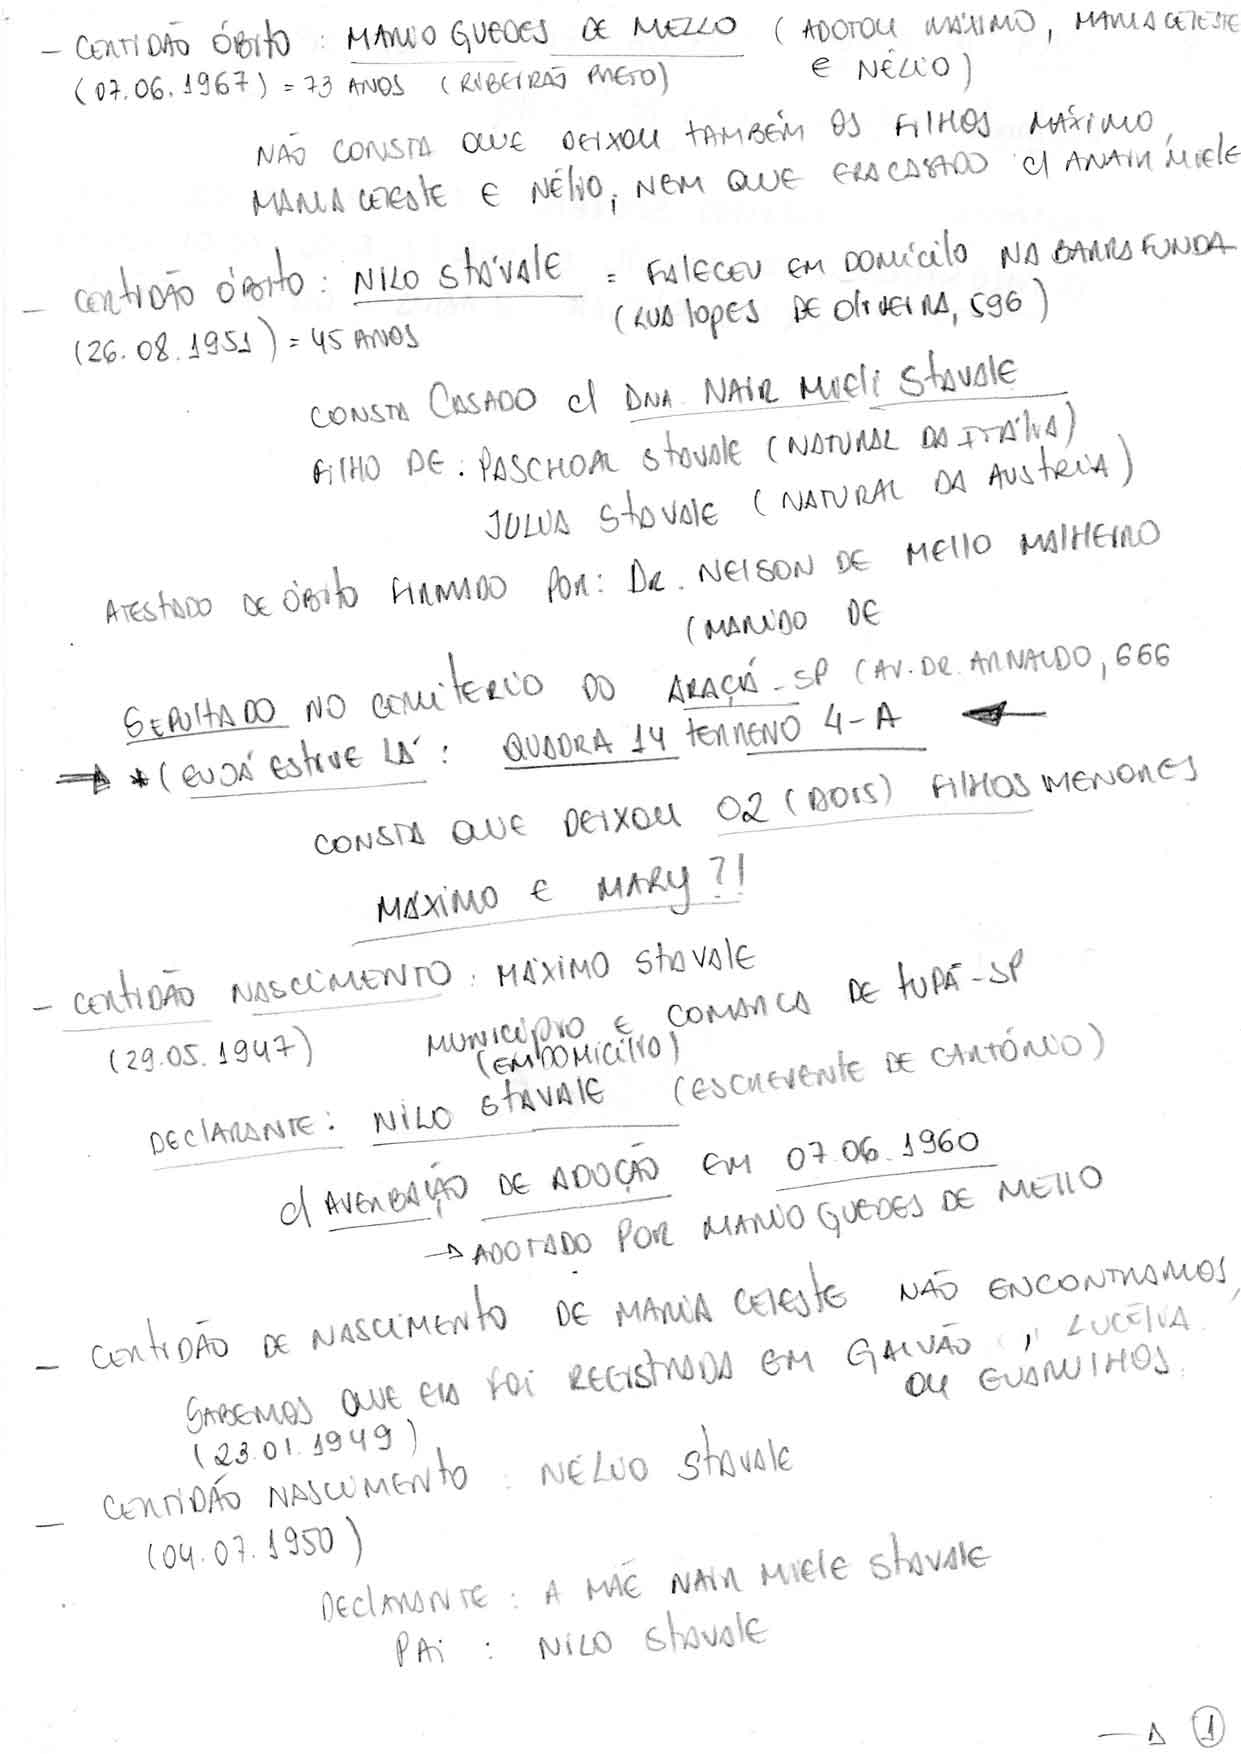 - CERTIDÃO ÓBITO : MARIO GUEDES DE MELLO ( ADOTOU MÁXIMO, MARIA CELESTE
E NÉLIO )
(07.06.1967) = 73 ANOS ( RIBEIRÃO PRETO)
NÃO CONSTA QUE DEIXOU TAMBÉM OS FILHOS MÁXIMO,
MARIA CELESTE E NÉLIO, NEM QUE ERA CASADO c/ ANAIR MIELE
- CERTIDÃO ÓBITO : NILO STÁVALE = FALECEU EM DOMICÍLIO NA BARRA FUNDA
(RUA LOPES DE OLIVEIRA, 596)
(26.08.1951) = 45 ANOS
CONSTA CASADO c/ DNA NAIR MIELI STAVALE
FILHO DE : PASCHOAL STAVALE ( NATURAL DA ITÁLIA)
JULIA STAVALE ( NATURAL DA AUSTRIA)
ATESTADO DE ÓBITO FIRMADO POR: DR. NELSON DE MELLO MALHEIRO
(MARIDO DE
SEPULTADO NO CEMITÉRIO DO ARAÇÁ - SP (AV. DR. ARNALDO, 666
→ * ( EU JÁ ESTIVE LÁ : QUADRA 14 TERRENO 4-A ←
CONSTA QUE DEIXOU 02 (DOIS) FILHOS MENORES
MÁXIMO E MARY ?!
- CERTIDÃO NASCIMENTO : MÁXIMO STAVALE
(29.05.1947) MUNICÍPIO E COMARCA DE TUPÃ - SP
(EM DOMICÍLIO)
DECLARANTE : NILO STAVALE (ESCREVENTE DE CARTÓRIO)
c/ AVERBAÇÃO DE ADOÇÃO EM 07.06.1960
→ ADOTADO POR MARIO GUEDES DE MELLO
- CERTIDÃO DE NASCIMENTO DE MARIA CELESTE NÃO ENCONTRAMOS,
SABEMOS QUE ELA FOI REGISTRADA EM GALVÃO , LUCÉLIA
OU GUARULHOS.
(23.01.1949)
- CERTIDÃO NASCIMENTO : NÉLIO STAVALE
(04.07.1950)
DECLARANTE : A MÃE NAIR MIELE STAVALE
PAI : NILO STAVALE
→ 1